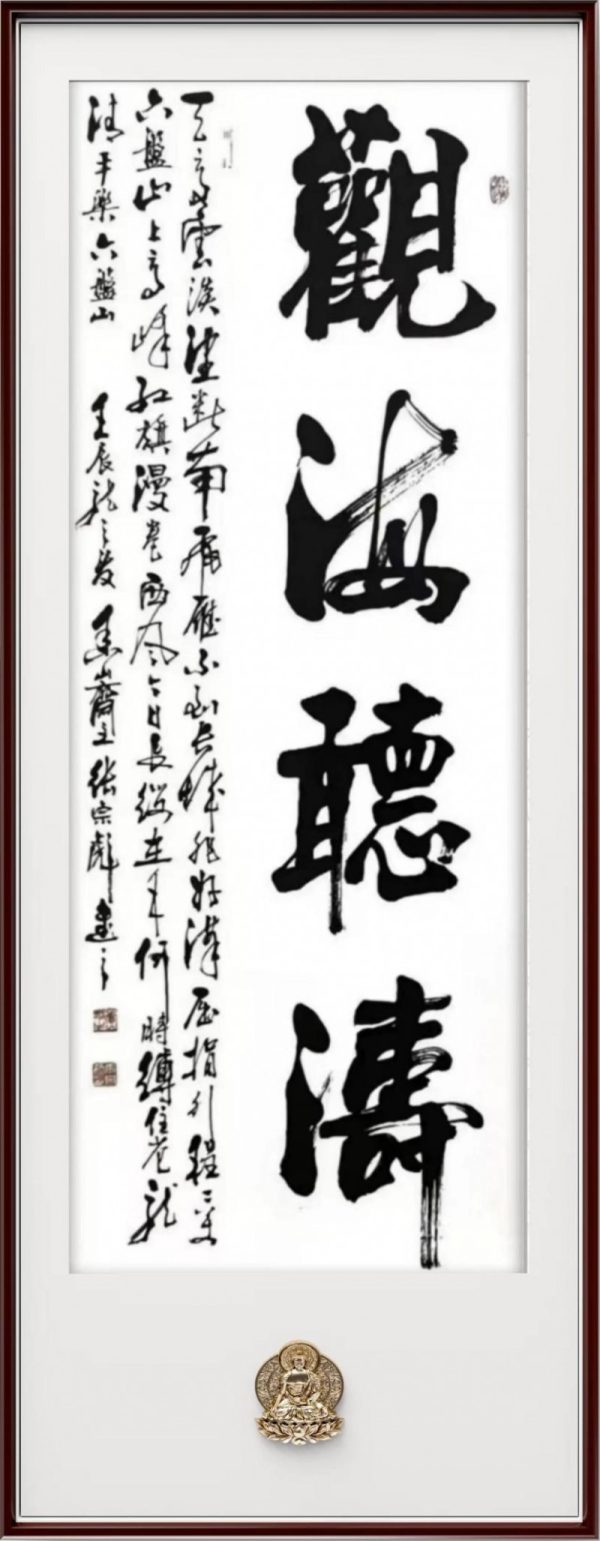 觀海聽濤
天高雲淡望斷南飛雁不到長城非好漢屈指行程二萬
六盤山上高峰紅旗漫卷西風今日長纓在手何時縛住蒼龍
清平樂六盤山 壬辰龍之 山齋主張宗彪書之